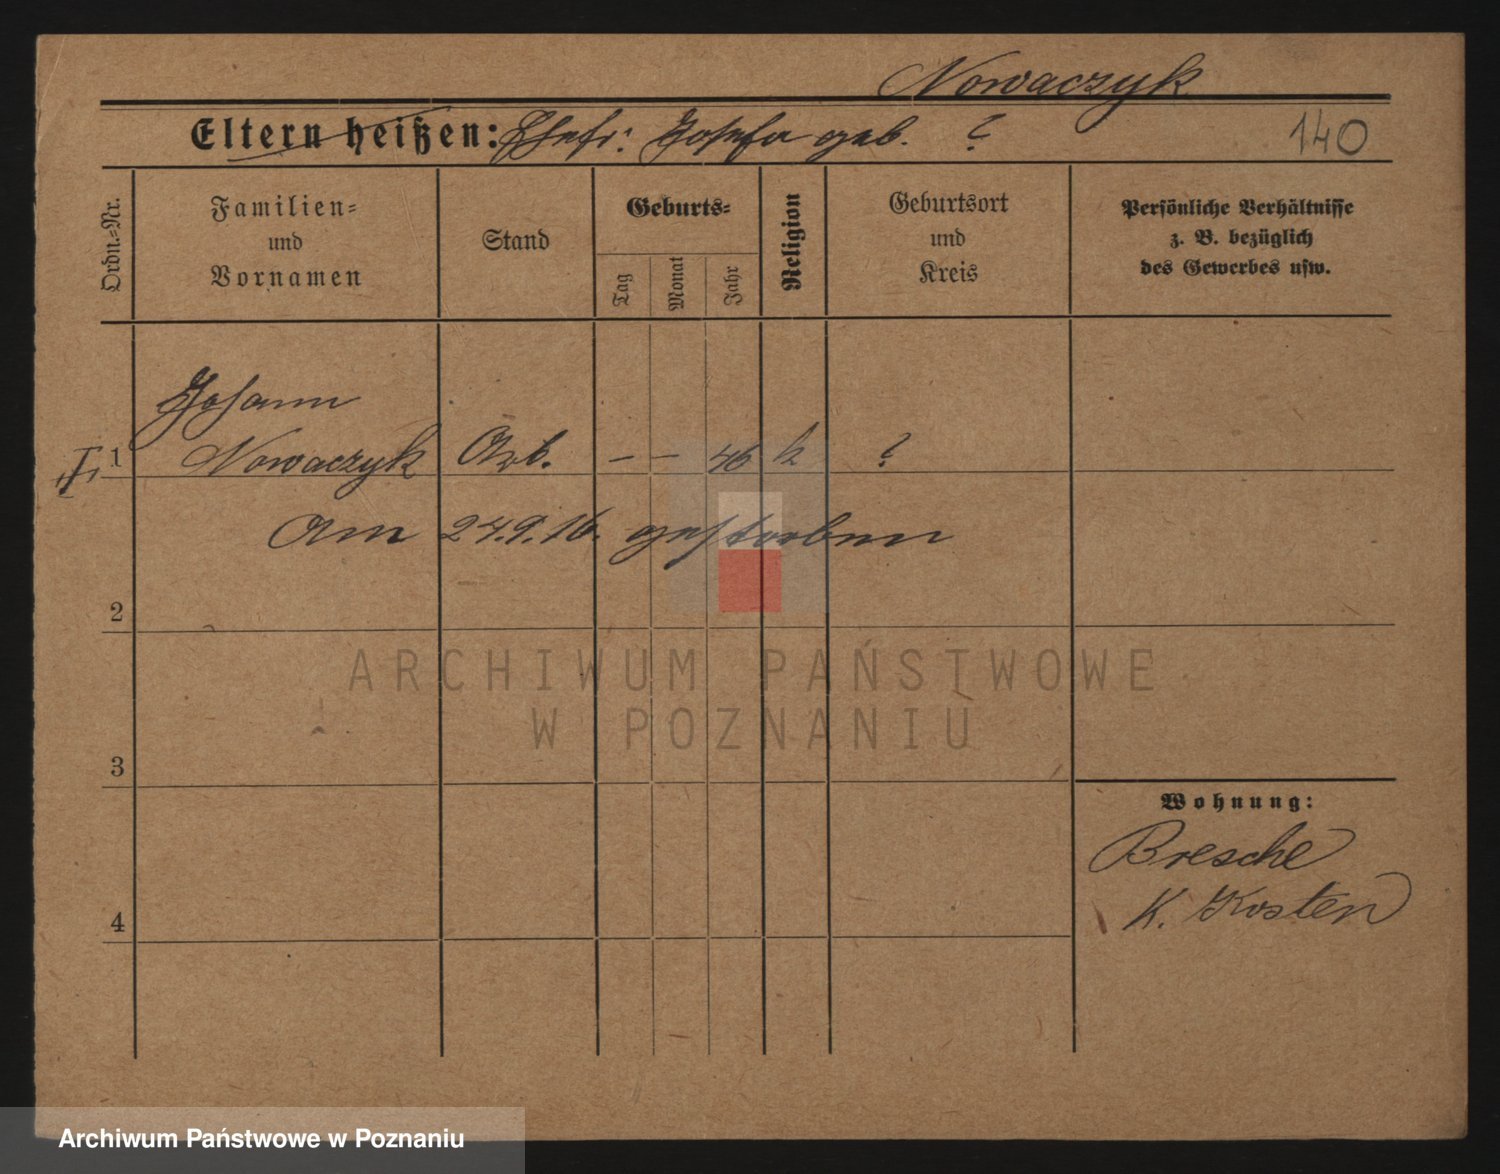 Nowaczyk
Eltern heißen: Ehefr: Josefa geb. ? 140
Ordn.=Nr.
Familien=
und
Vornamen
Stand
Geburts=
Tag
Monat
Jahr
Religion
Geburtsort
und
Kreis
Persönliche Verhältnisse
z. B. bezüglich
des Gewerbes usw.
Johann
1 Nowaczyk Arb. – – 46 k ?
Am 24.9.16. gestorben
2
ARCHIWUM PAŃSTWOWE
W POZNANIU
3
Wohnung:
Bresche
K. Kosten
4
Archiwum Państwowe w Poznaniu